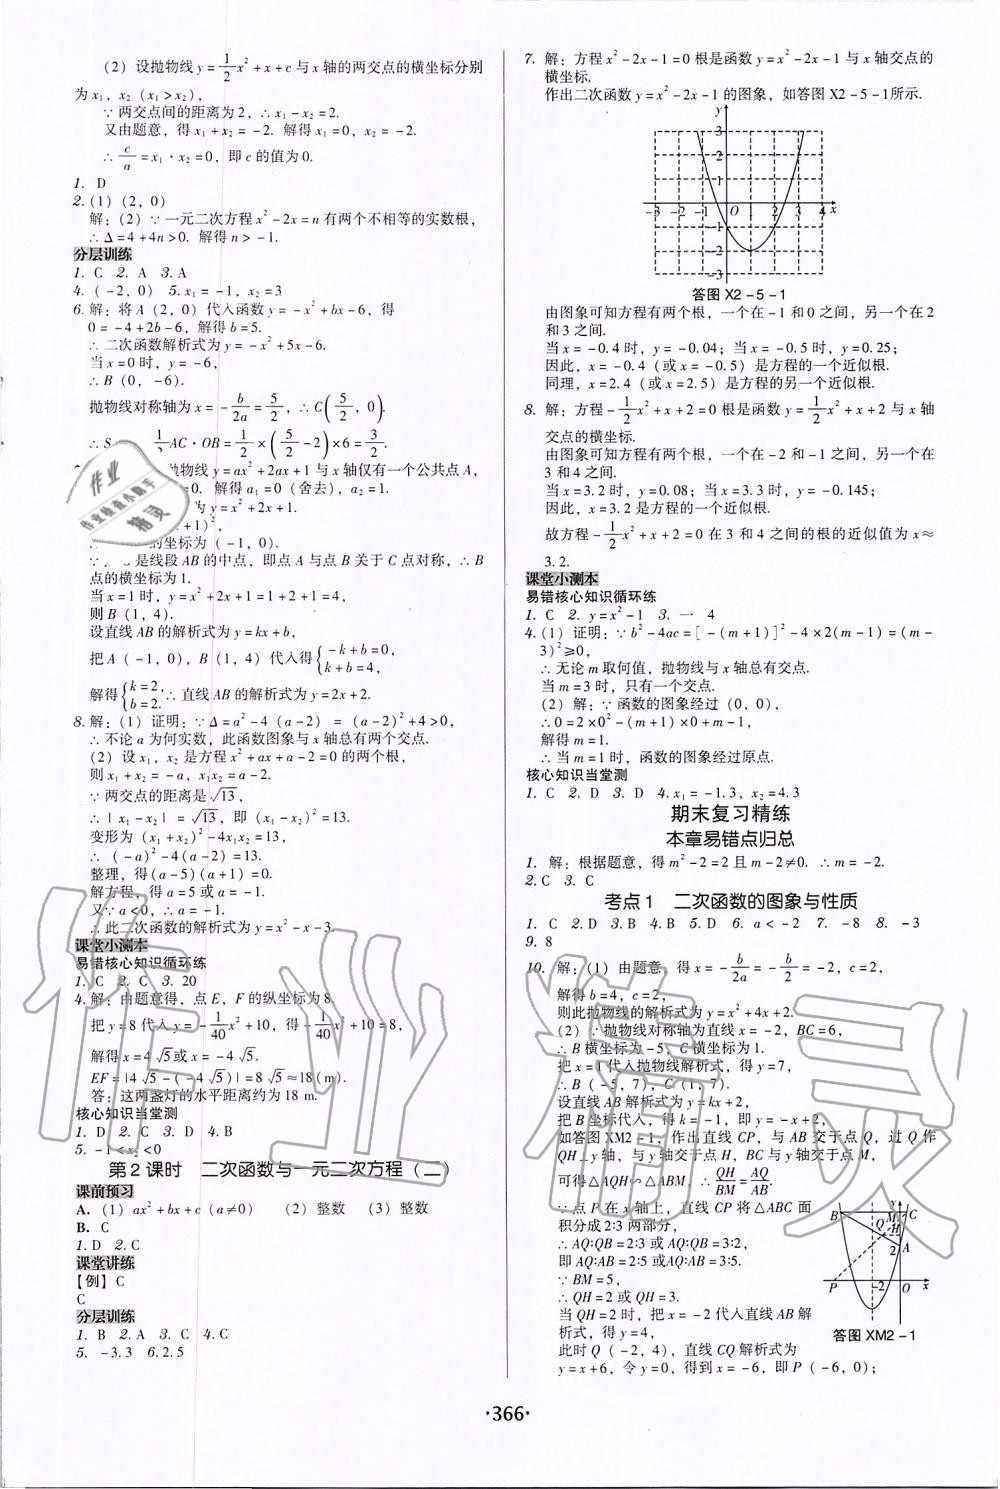 (2) 设抛物线 y=1/2x²+x+c 与 x 轴的两交点的横坐标分别
为 x₁, x₂ (x₁>x₂),
∵两交点间的距离为2, ∴x₁-x₂=2.
又由题意, 得 x₁+x₂=-2. 解得 x₁=0, x₂=-2.
∴c/a=x₁·x₂=0, 即 c 的值为 0.
1. D
2. (1) (2, 0)
解: (2) ∵一元二次方程 x²-2x=n 有两个不相等的实数根,
∴Δ=4+4n>0. 解得 n>-1.
分层训练
1. C 2. A 3. A
4. (-2, 0) 5. x₁=-1, x₂=3
6. 解: 将 A (2, 0) 代入函数 y=-x²+bx-6, 得
0=-4+2b-6, 解得 b=5.
∴二次函数解析式为 y=-x²+5x-6.
当 x=0 时, y=-6,
∴B (0, -6).
抛物线对称轴为 x=-b/2a=5/2, ∴C(5/2, 0).
∴S 1/2AC·OB=1/2×(5/2-2)×6=3/2.
抛物线 y=ax²+2ax+1 与 x 轴仅有一个公共点 A,
=0. 解得 a₁=0 (舍去), a₂=1.
为 y=x²+2x+1.
+1)²,
的坐标为 (-1, 0).
∵ 是线段 AB 的中点, 即点 A 与点 B 关于 C 点对称, ∴B
点的横坐标为 1.
当 x=1 时, y=x²+2x+1=1+2+1=4,
则 B (1, 4).
设直线 AB 的解析式为 y=kx+b,
把 A (-1, 0), B (1, 4) 代入得{-k+b=0, k+b=4,
解得{k=2, b=2. ∴直线 AB 的解析式为 y=2x+2.
8. 解: (1) 证明: ∵Δ=a²-4 (a-2) = (a-2)²+4>0,
∴不论 a 为何实数, 此函数图象与 x 轴总有两个交点.
(2) 设 x₁, x₂ 是方程 x²+ax+a-2=0 的两个根,
则 x₁+x₂=-a, x₁x₂=a-2.
∵两交点的距离是√13,
∴|x₁-x₂|=√13, 即 (x₁-x₂)²=13.
变形为 (x₁+x₂)²-4x₁x₂=13.
∴ (-a)²-4(a-2)=13.
整理, 得(a-5)(a+1)=0.
解方程, 得 a=5 或 a=-1.
又∵a<0, ∴a=-1.
∴此二次函数的解析式为 y=x²-x-3.
课堂小测本
易错核心知识循环练
1. C 2. C 3. 20
4. 解: 由题意得, 点 E, F 的纵坐标为 8,
把 y=8 代入 y=-1/40x²+10, 得-1/40x²+10=8,
解得 x=4√5或 x=-4√5.
EF=|4√5-(-4√5)|=8√5≈18(m).
答: 这两盏灯的水平距离约为 18 m.
核心知识当堂测
1. D 2. C 3. D 4. B
5. -1<x₁<0
第 2 课时 二次函数与一元二次方程 (二)
课前预习
A. (1) ax²+bx+c (a≠0) (2) 整数 (3) 整数
B. C
1. D 2. C
课堂讲练
【例】C
C
分层训练
1. B 2. A 3. C 4. C
5. -3.3 6. 2.5
7. 解: 方程 x²-2x-1=0 根是函数 y=x²-2x-1 与 x 轴交点的
横坐标.
作出二次函数 y=x²-2x-1 的图象, 如答图 X2-5-1所示.
y
3
2
1
-3 -2 -1 O 1 2 3 4 x
-1
-2
-3
答图 X2-5-1
由图象可知方程有两个根, 一个在-1 和 0 之间, 另一个在 2
和 3 之间.
当 x=-0.4 时, y=-0.04; 当 x=-0.5 时, y=0.25;
因此, x=-0.4 (或 x=-0.5) 是方程的一个近似根.
同理, x=2.4 (或 x=2.5) 是方程的另一个近似根.
8. 解: 方程-1/2x²+x+2=0 根是函数 y=1/2x²+x+2 与 x 轴
交点的横坐标.
由图象可知方程有两个根, 一个在-2 和-1 之间, 另一个在
3 和 4 之间.
当 x=3.2 时, y=0.08; 当 x=3.3 时, y=-0.145;
因此, x=3.2 是方程的一个近似根.
故方程-1/2x²+x+2=0 在 3 和 4 之间的根的近似值为 x≈
3.2.
课堂小测本
易错核心知识循环练
1. C 2. y=x²-1 3. 一 4
4. (1) 证明: ∵b²-4ac=[-(m+1)]²-4×2(m-1)=(m-
3)²≥0,
∴无论 m 取何值, 抛物线与 x 轴总有交点.
当 m=3 时, 只有一个交点.
(2) 解: ∵函数的图象经过 (0, 0),
∴0=2×0²-(m+1)×0+m-1,
解得 m=1.
∴当 m=1 时, 函数的图象经过原点.
核心知识当堂测
1. C 2. D 3. D 4. x₁=-1.3, x₂=4.3
期末复习精练
本章易错点归总
1. 解: 根据题意, 得 m²-2=2 且 m-2≠0. ∴m=-2.
2. C 3. C
考点 1 二次函数的图象与性质
1. C 2. D 3. B 4. B 5. D 6. a<-2 7. -8 8. -3
9. 8
10. 解: (1) 由题意, 得 x=-b/2a=-b/2=-2, c=2,
解得 b=4, c=2,
则此抛物线的解析式为 y=x²+4x+2.
(2) ∵抛物线对称轴为直线 x=-2, BC=6,
∴B 横坐标为-5, C 横坐标为 1.
把 x=1 代入抛物线解析式, 得 y=7,
∴B (-5, 7), C (1, 7).
设直线 AB 解析式为 y=kx+2,
把 B 坐标代入, 得 k=-1, 即 y=-x+2;
如答图 XM2-1, 作出直线 CP, 与 AB 交于点 Q, 过 Q 作
QH⊥y 轴, 与 y 轴交于点 H, BC 与 y 轴交于点 M,
可得△AQH∽△ABM, ∴QH/BM=AQ/AB.
∵点 P 在 x 轴上, 直线 CP 将△ABC 面
积分成 2:3 两部分,
∴AQ:QB=2:3 或 AQ:QB=3:2,
即 AQ:AB=2:5 或AQ:AB=3:5.
∵BM=5,
∴QH=2 或 QH=3.
当 QH=2 时, 把 x=-2 代入直线 AB 解
析式, 得 y=4,
此时 Q (-2, 4), 直线 CQ 解析式为
y=x+6, 令 y=0, 得到 x=-6, 即 P (-6, 0);
B M C
Q H
2 A
P -2 O x
答图 XM2-1
·366·
作业
作业检查小助手
精灵
作业精灵